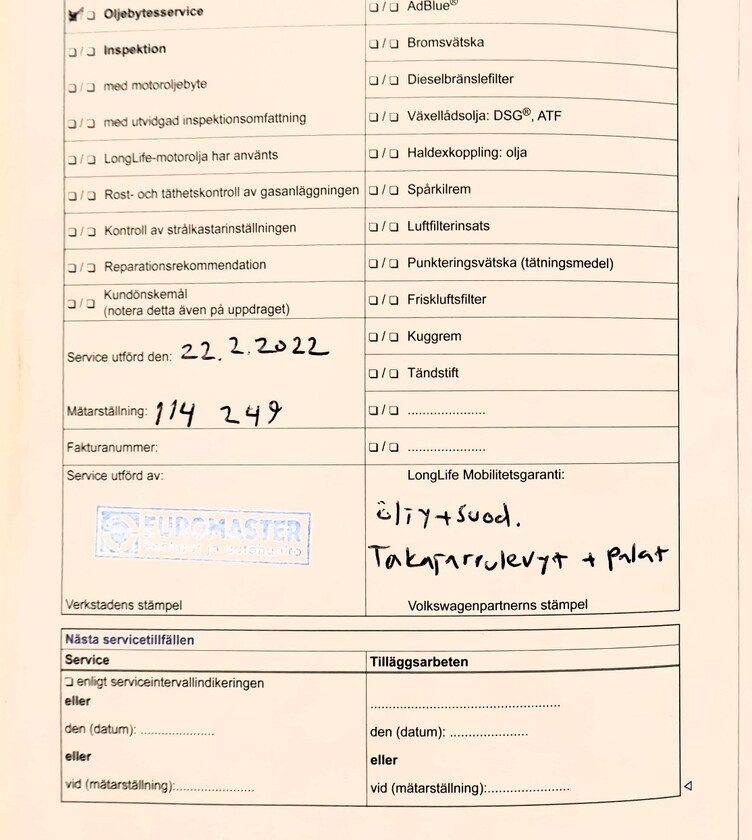 Oljebytesservice
AdBlue®
Inspektion
Bromsvätska
med motoroljebyte
Dieselbränslefilter
med utvidgad inspektionsomfattning
Växellådsolja: DSG®, ATF
LongLife-motorolja har använts
Haldexkoppling: olja
Rost- och täthetskontroll av gasanläggningen
Spårkilrem
Kontroll av strålkastarinställningen
Luftfilterinsats
Reparationsrekommendation
Punkteringsvätska (tätningsmedel)
Kundönskemål
(notera detta även på uppdraget)
Friskluftsfilter
Kuggrem
Service utförd den: 22.2.2022
Tändstift
Mätarställning: 114 249
....................
Fakturanummer:
....................
Service utförd av:
LongLife Mobilitetsgaranti:
EUROMASTER
öljy+suod.
Takajarrulevyt + palat
Verkstadens stämpel
Volkswagenpartnerns stämpel
Nästa servicetillfällen
Service
Tilläggsarbeten
enligt serviceintervallindikeringen
eller
den (datum): ....................
den (datum): ....................
eller
eller
vid (mätarställning):....................
vid (mätarställning):....................